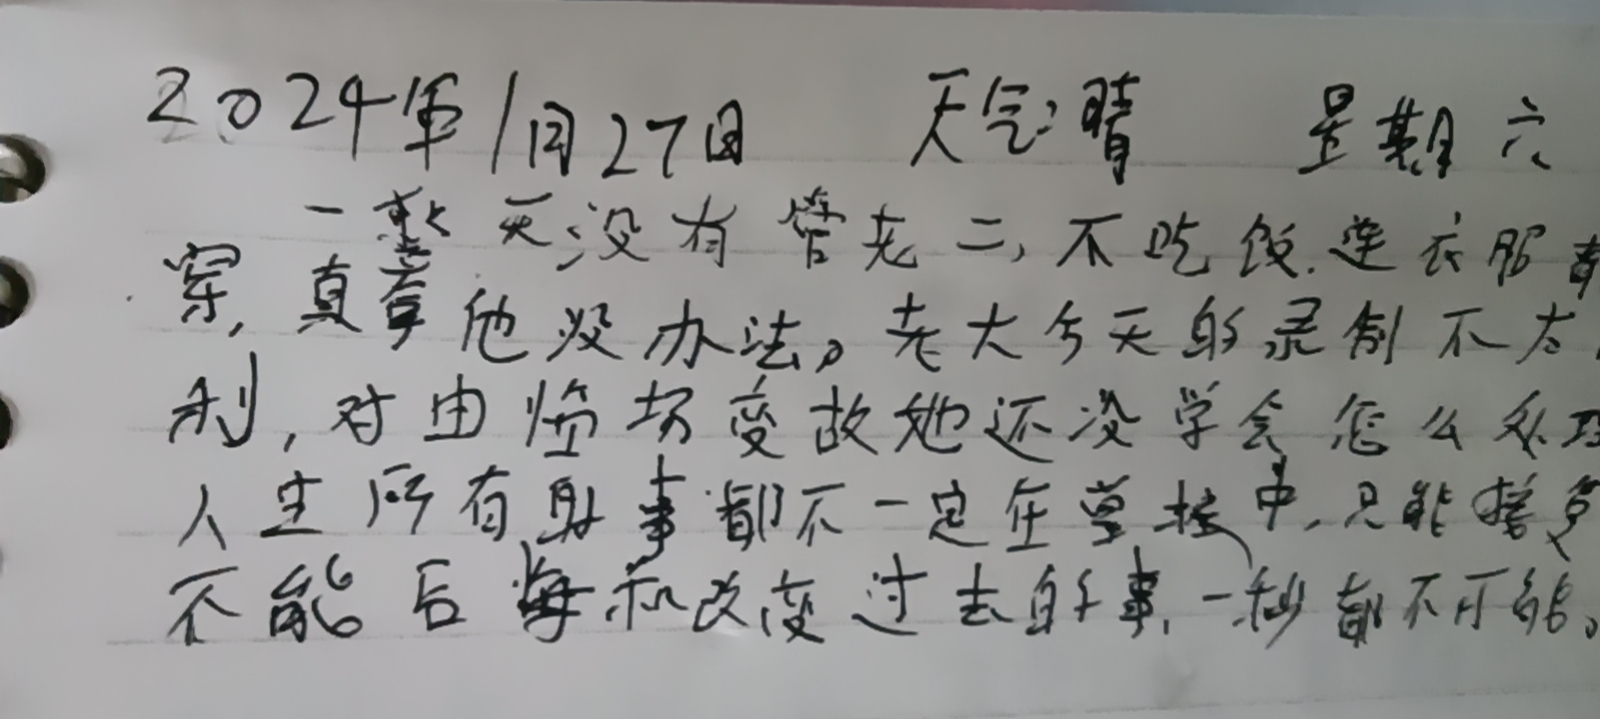 2024年1月27日 天气:晴 星期六
一整天没有管老二,不吃饭.连衣服都
穿,真拿他没办法。老大今天的录制不太
利,对由临场变故她还没学会怎么处理
人生所有的事都不一定在掌控中.只能接受
不能后悔和改变过去的事.一秒都不可能。